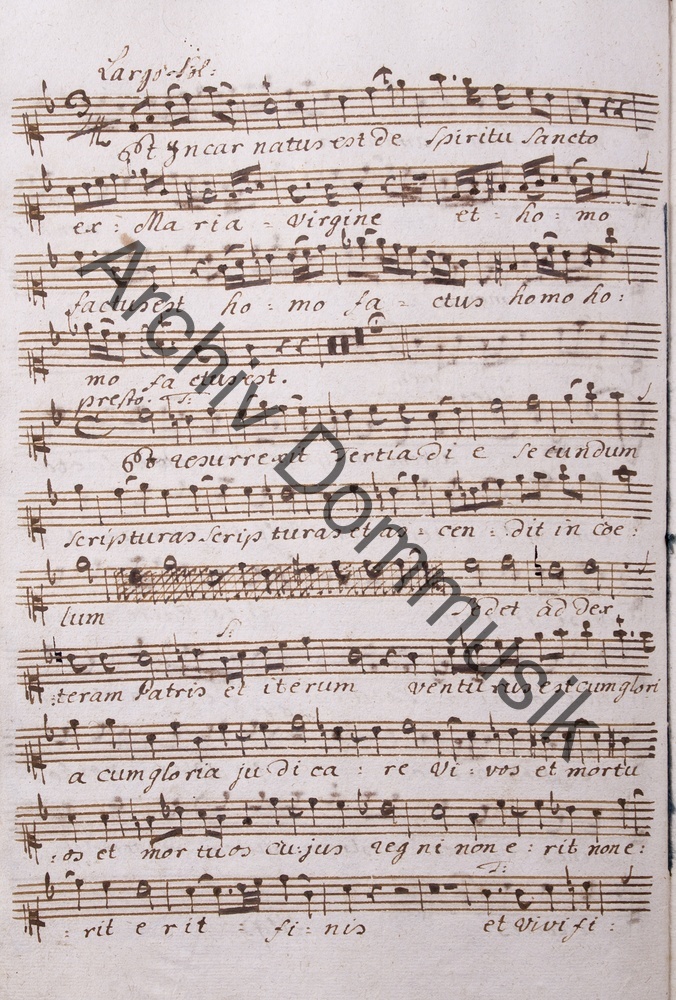 Largo. Sol:
Et Incar natus est de Spiritu Sancto
ex : Ma ria - Virgine et : ho : mo
factus est ho : mo fa - ctus homo ho :
mo fa ctus est.
presto. T:
Et resurrexit tertia di e secundum
scripturas scrip turas et as : cen : dit in coe :
lum Sedet ad dex
S:
teram Patris et iterum venturus est cum glori
a cum gloria ju di ca : re Vi : vos et mortu
: os et mor tuos cu : jus regni non e : rit none :
T:
: rit e rit fi : nis et vivifi :
Archiv Dommusik